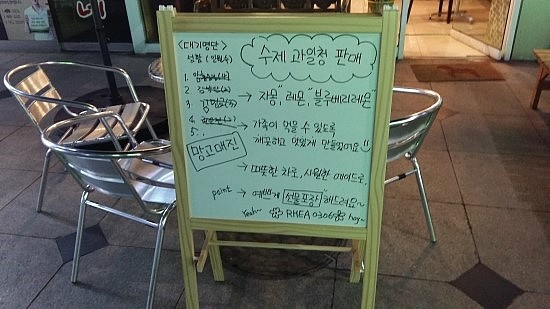 <대기명단>
성함 (인원수)
1.
2.
3.
4.
5.
망고매진
수제 과일청 판매
→ 자몽, 레몬, 블루베리레몬
→ 가족이 먹을 수 있도록
깨끗하고 맛있게 만들었어요!!
→ 따뜻한 차로, 시원한 에이드로,
point → 예쁘게 선물포장 해드려요~
Yeah~ RHEA 0306